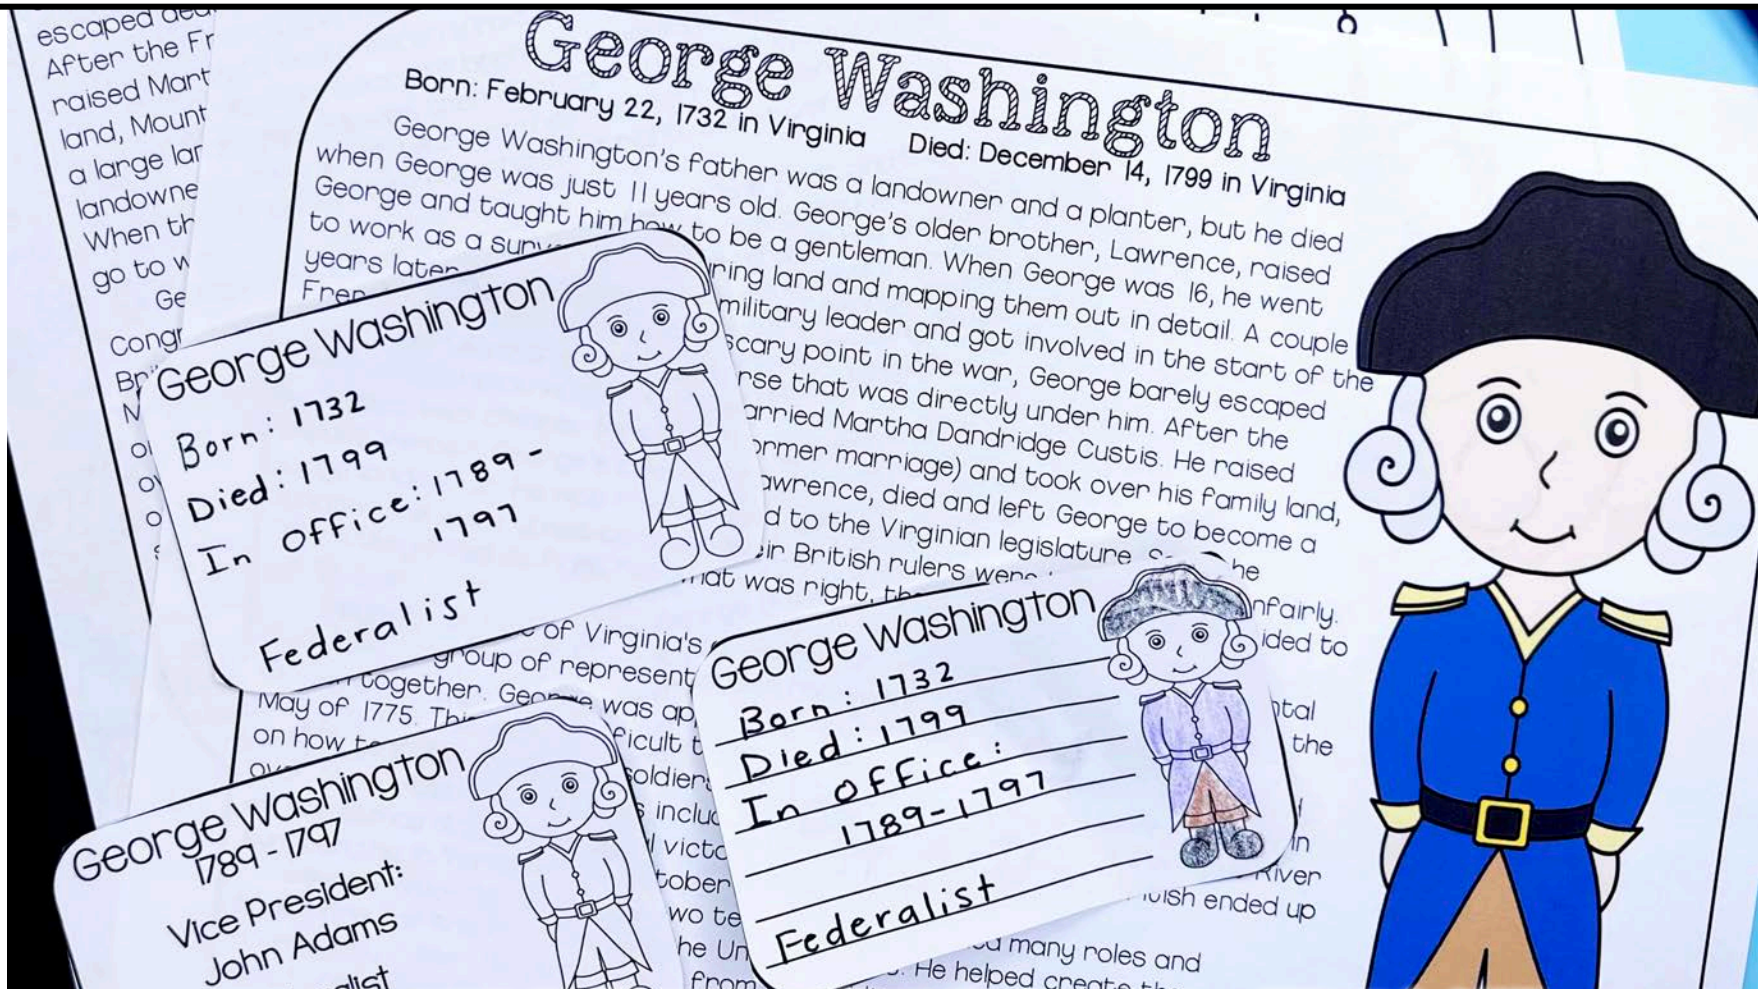 escaped
After the Fr
raised Mart
land, Mount
a large lar
landowne
When th
go to w
Ge
Congr
George Washington
Born: February 22, 1732 in Virginia Died: December 14, 1799 in Virginia
George Washington's father was a landowner and a planter, but he died
when George was just 11 years old. George's older brother, Lawrence, raised
George and taught him how to be a gentleman. When George was 16, he went
to work as a surv ring land and mapping them out in detail. A couple
years later military leader and got involved in the start of the
scary point in the war, George barely escaped
rse that was directly under him. After the
arried Martha Dandridge Custis. He raised
ormer marriage) and took over his family land,
awrence, died and left George to become a
d to the Virginian legislature. he
eir British rulers were nfairly.
hat was right, ided to
of Virginia's
group of represent
together. George was ap ntal
May of 1775. This ficult the
on how to soldiers
s includ
l victo in
tober River
wo te itish ended up
he Un many roles and
from He helped create
George Washington
Born: 1732
Died: 1799
In office: 1789-
1797
Federalist
George Washington
Born: 1732
Died: 1799
In office:
1789-1797
Federalist
George Washington
1789 - 1797
Vice President:
John Adams
alist